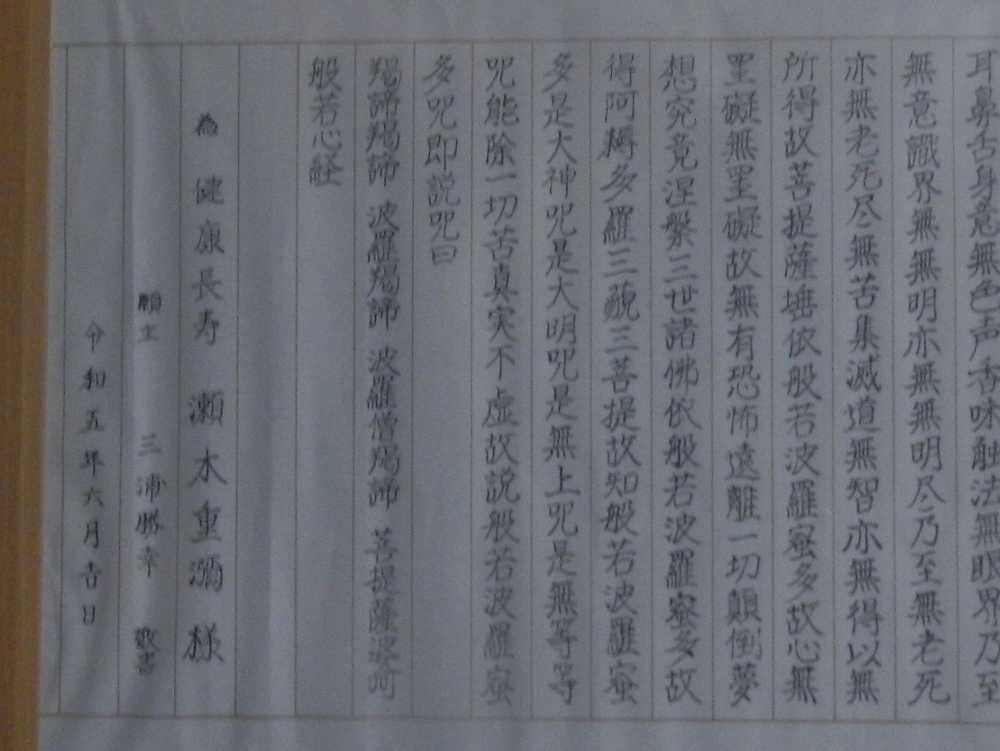 耳鼻舌身意無色声香味触法無眼界乃至
無意識界無無明亦無無明尽乃至無老死
亦無老死尽無苦集滅道無智亦無得以無
所得故菩提薩埵依般若波羅蜜多故心無
罣礙無罣礙故無有恐怖遠離一切顛倒夢
想究竟涅槃三世諸佛依般若波羅蜜多故
得阿耨多羅三藐三菩提故知般若波羅蜜
多是大神呪是大明呪是無上呪是無等等
呪能除一切苦真実不虚故説般若波羅蜜
多呪即説呪曰
羯諦羯諦 波羅羯諦 波羅僧羯諦 菩提薩婆訶
般若心経
為 健康長寿 瀬木重彌 様
願主 三浦勝幸 敬書
令和五年六月吉日